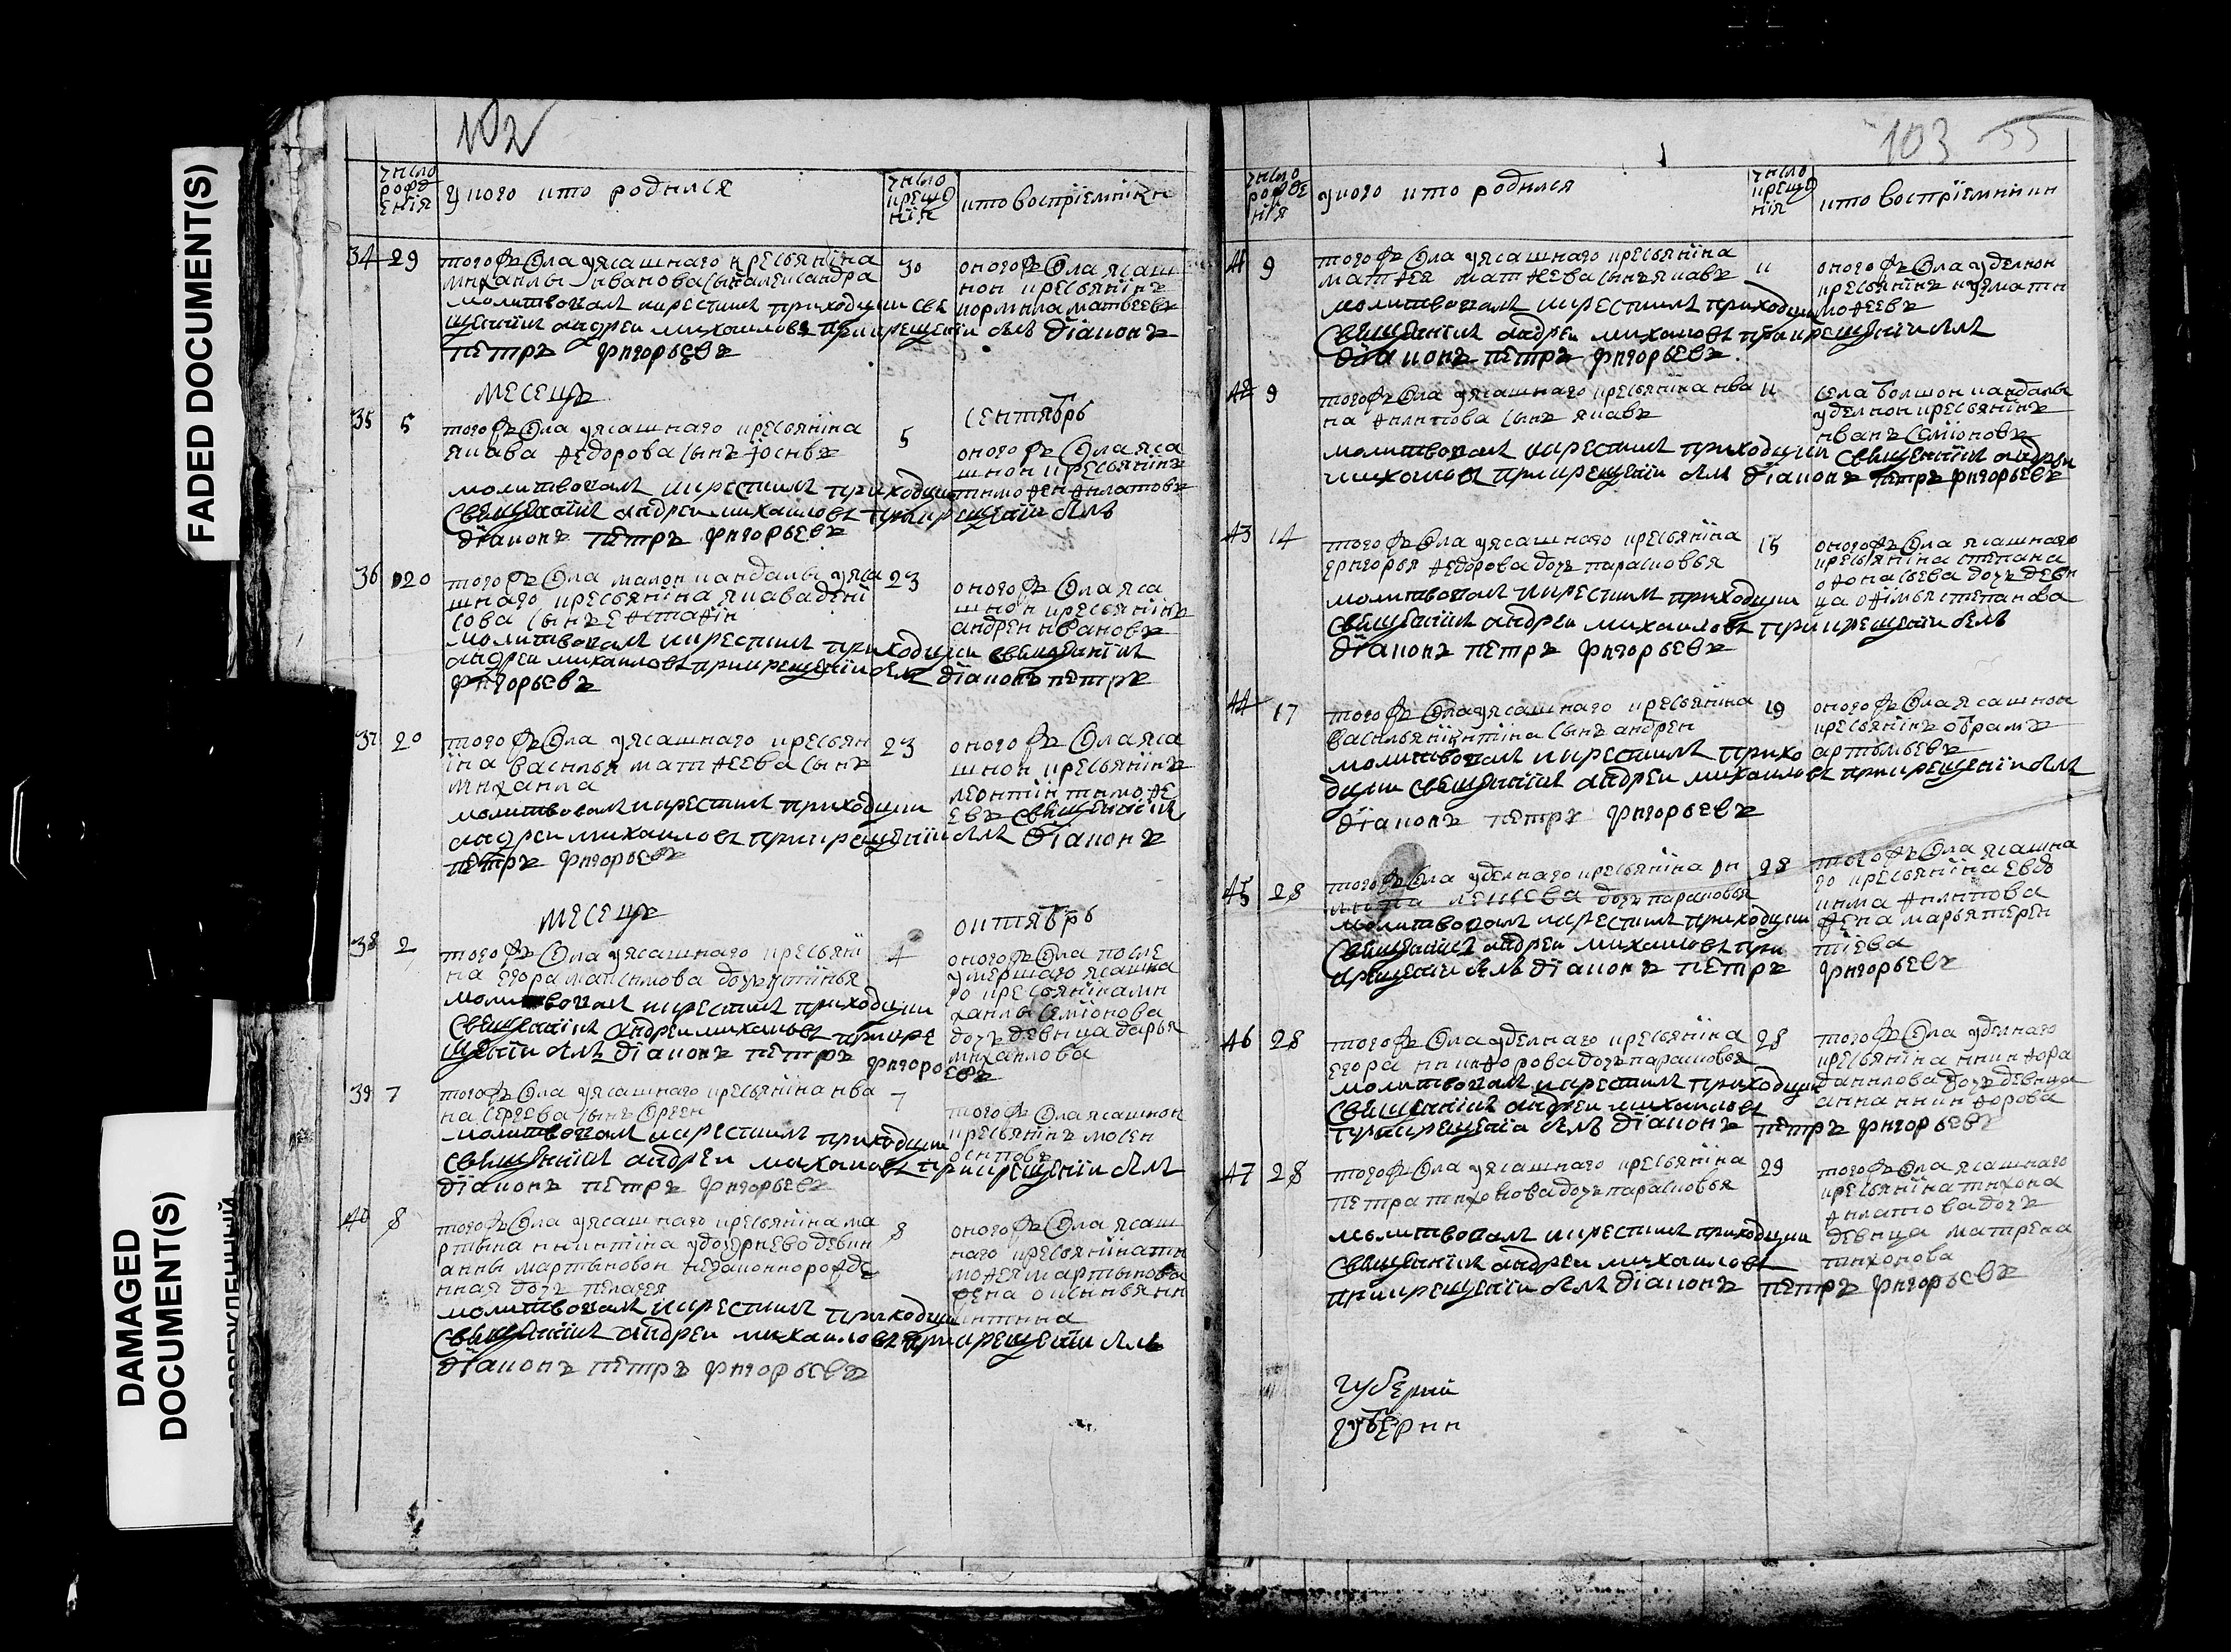 FADED DOCUMENT(S)
DAMAGED
DOCUMENT(S)
102
число
рожд
енїя
у кого кто родился
число
креще
нїя
кто воспрїемники
34 29
того ж села уясашнаго кресьянїна
михаилы иванова сынъ александра
молитвовалъ и крестилъ приходцки све
щеннїкъ андреи михаиловъ при крещенїи былъ дїаконъ
петръ григорьевъ
30
оного ж села ясаш
нои кресьянїнъ
кормила матвеевъ
месецъ
сентябрь
35 5
того ж села уясашнаго кресьянїна
якава ѳедорова сынъ іосифъ
молитвовалъ и крестилъ приходцки
свещеннїкъ андреи михаиловъ при крещенїи былъ
дїаконъ петръ григорьевъ
5
оного ж села яса
шнои кресьянїнъ
тимоѳеи ѳилатовъ
36 20
того ж села малои кандалы уяса
шнаго кресьянїна якава денї
сова сынъ еѵстаѳїи
молитвовалъ и крестилъ приходцки свещеннїкъ
андреи михаиловъ при крещенїи былъ дїаконъ петръ
григорьевъ
23
оного ж села яса
шнои кресьянїнъ
андреи ивановъ
37 20
того ж села уясашнаго кресьян
їна василья матѳеева сынъ
михаила
молитвовалъ и крестилъ приходцки
андреи михаиловъ при крещенїи былъ дїаконъ
петръ григорьевъ
23
оного ж села яса
шнои кресьянїнъ
леонтіи тимоѳе
евъ свещеннїкъ
месецъ
октябрь
38 2
того ж села уясашнаго кресьянї
на егора максимова дочъ устїнья
молитвовалъ и крестилъ приходцки
свещеннїкъ андреи михаиловъ при кре
щенїи былъ дїаконъ петръ григорьевъ
4
оного ж села после
умершаго ясашна
го кресьянїна ми
хаилы семїонова
дочъ девица дарья
михаилова
39 7
того ж села уясашнаго кресьянїна ива
на сергеева сынъ сргеи
молитвовалъ и крестилъ приходцки
свещеннїкъ андреи михаиловъ при крещенїи былъ
дїаконъ петръ григорьевъ
7
того ж села ясашнои
кресьянїнъ мосеи
осиповъ
40 8
того ж села уясашнаго кресьянїна ма
ртына никитина удочриево девки
анны мартыновои незаконнорожде
нная дочъ пелагея
молитвовалъ и крестилъ приходцки
свещеннїкъ андреи михаиловъ при крещенїи былъ
дїаконъ петръ григорьевъ
8
оного ж села ясаш
наго кресьянїна ти
моѳея мартынова
жена оксинья ни
китина
103 55
число
рожде
нїя
у кого кто родился
число
креще
нїя
кто воспрїемники
41 9
того ж села уясашнаго кресьянїна
матѳея матѳеева сынъ якавъ
молитвовалъ и крестилъ приходцки
свещеннїкъ андреи михаиловъ при крещенїи былъ
дїаконъ петръ григорьевъ
11
оного ж села уделнои
кресьянїнъ кузма ти
моѳеевъ
42 9
того ж села уясашнаго кресьянїна ива
на ѳилипова сынъ якавъ
молитвовалъ и крестилъ приходцки свещеннїкъ андреи
михаиловъ при крещенїи былъ дїаконъ петръ григорьевъ
11
села болшои кандалы
уделнои кресьянїнъ
иванъ семїоновъ
43 14
того ж села уясашнаго кресьянїна
григорья ѳедорова дочъ парасковья
молитвовалъ и крестилъ приходцки
свещеннїкъ андреи михаиловъ при крещенїи былъ
дїаконъ петръ григорьевъ
15
оного ж села ясашнаго
кресьянїна степана
оѳонасьева дочъ деви
ца оѳимья степанова
44 17
того ж села уясашнаго кресьянїна
василья никитина сынъ андреи
молитвовалъ и крестилъ прихо
дцки свещеннїкъ андреи михаиловъ при крещенїи былъ
дїаконъ петръ григорьевъ
19
оного ж села ясашнои
кресьянїнъ обрамъ
артемьевъ
45 28
того ж села уделнаго кресьянїна
дочъ парасковья
молитвовалъ и крестилъ приходцки
свещеннїкъ андреи михаиловъ при
крещенїи былъ дїаконъ петръ григорьевъ
28
того ж села ясашна
го кресьянїна евдо
кима ѳилипова
жена марья терен
тїева
46 28
того ж села уделнаго кресьянїна
егора никиѳорова дочъ парасковья
молитвовалъ и крестилъ приходцки
свещеннїкъ андреи михаиловъ
при крещенїи былъ дїаконъ петръ григорьевъ
28
того ж села уделнаго
кресьянїна никиѳора
данилова дочъ девица
анна никиѳорова
47 28
того ж села уясашнаго кресьянїна
петра тихонова дочъ парасковья
молитвовалъ и крестилъ приходцки
свещеннїкъ андреи михаиловъ
при крещенїи былъ дїаконъ петръ григорьевъ
29
того ж села ясашнаго
кресьянїна тихона
ѳилатова дочъ
девица матрена
тихонова
губернїи
губернии